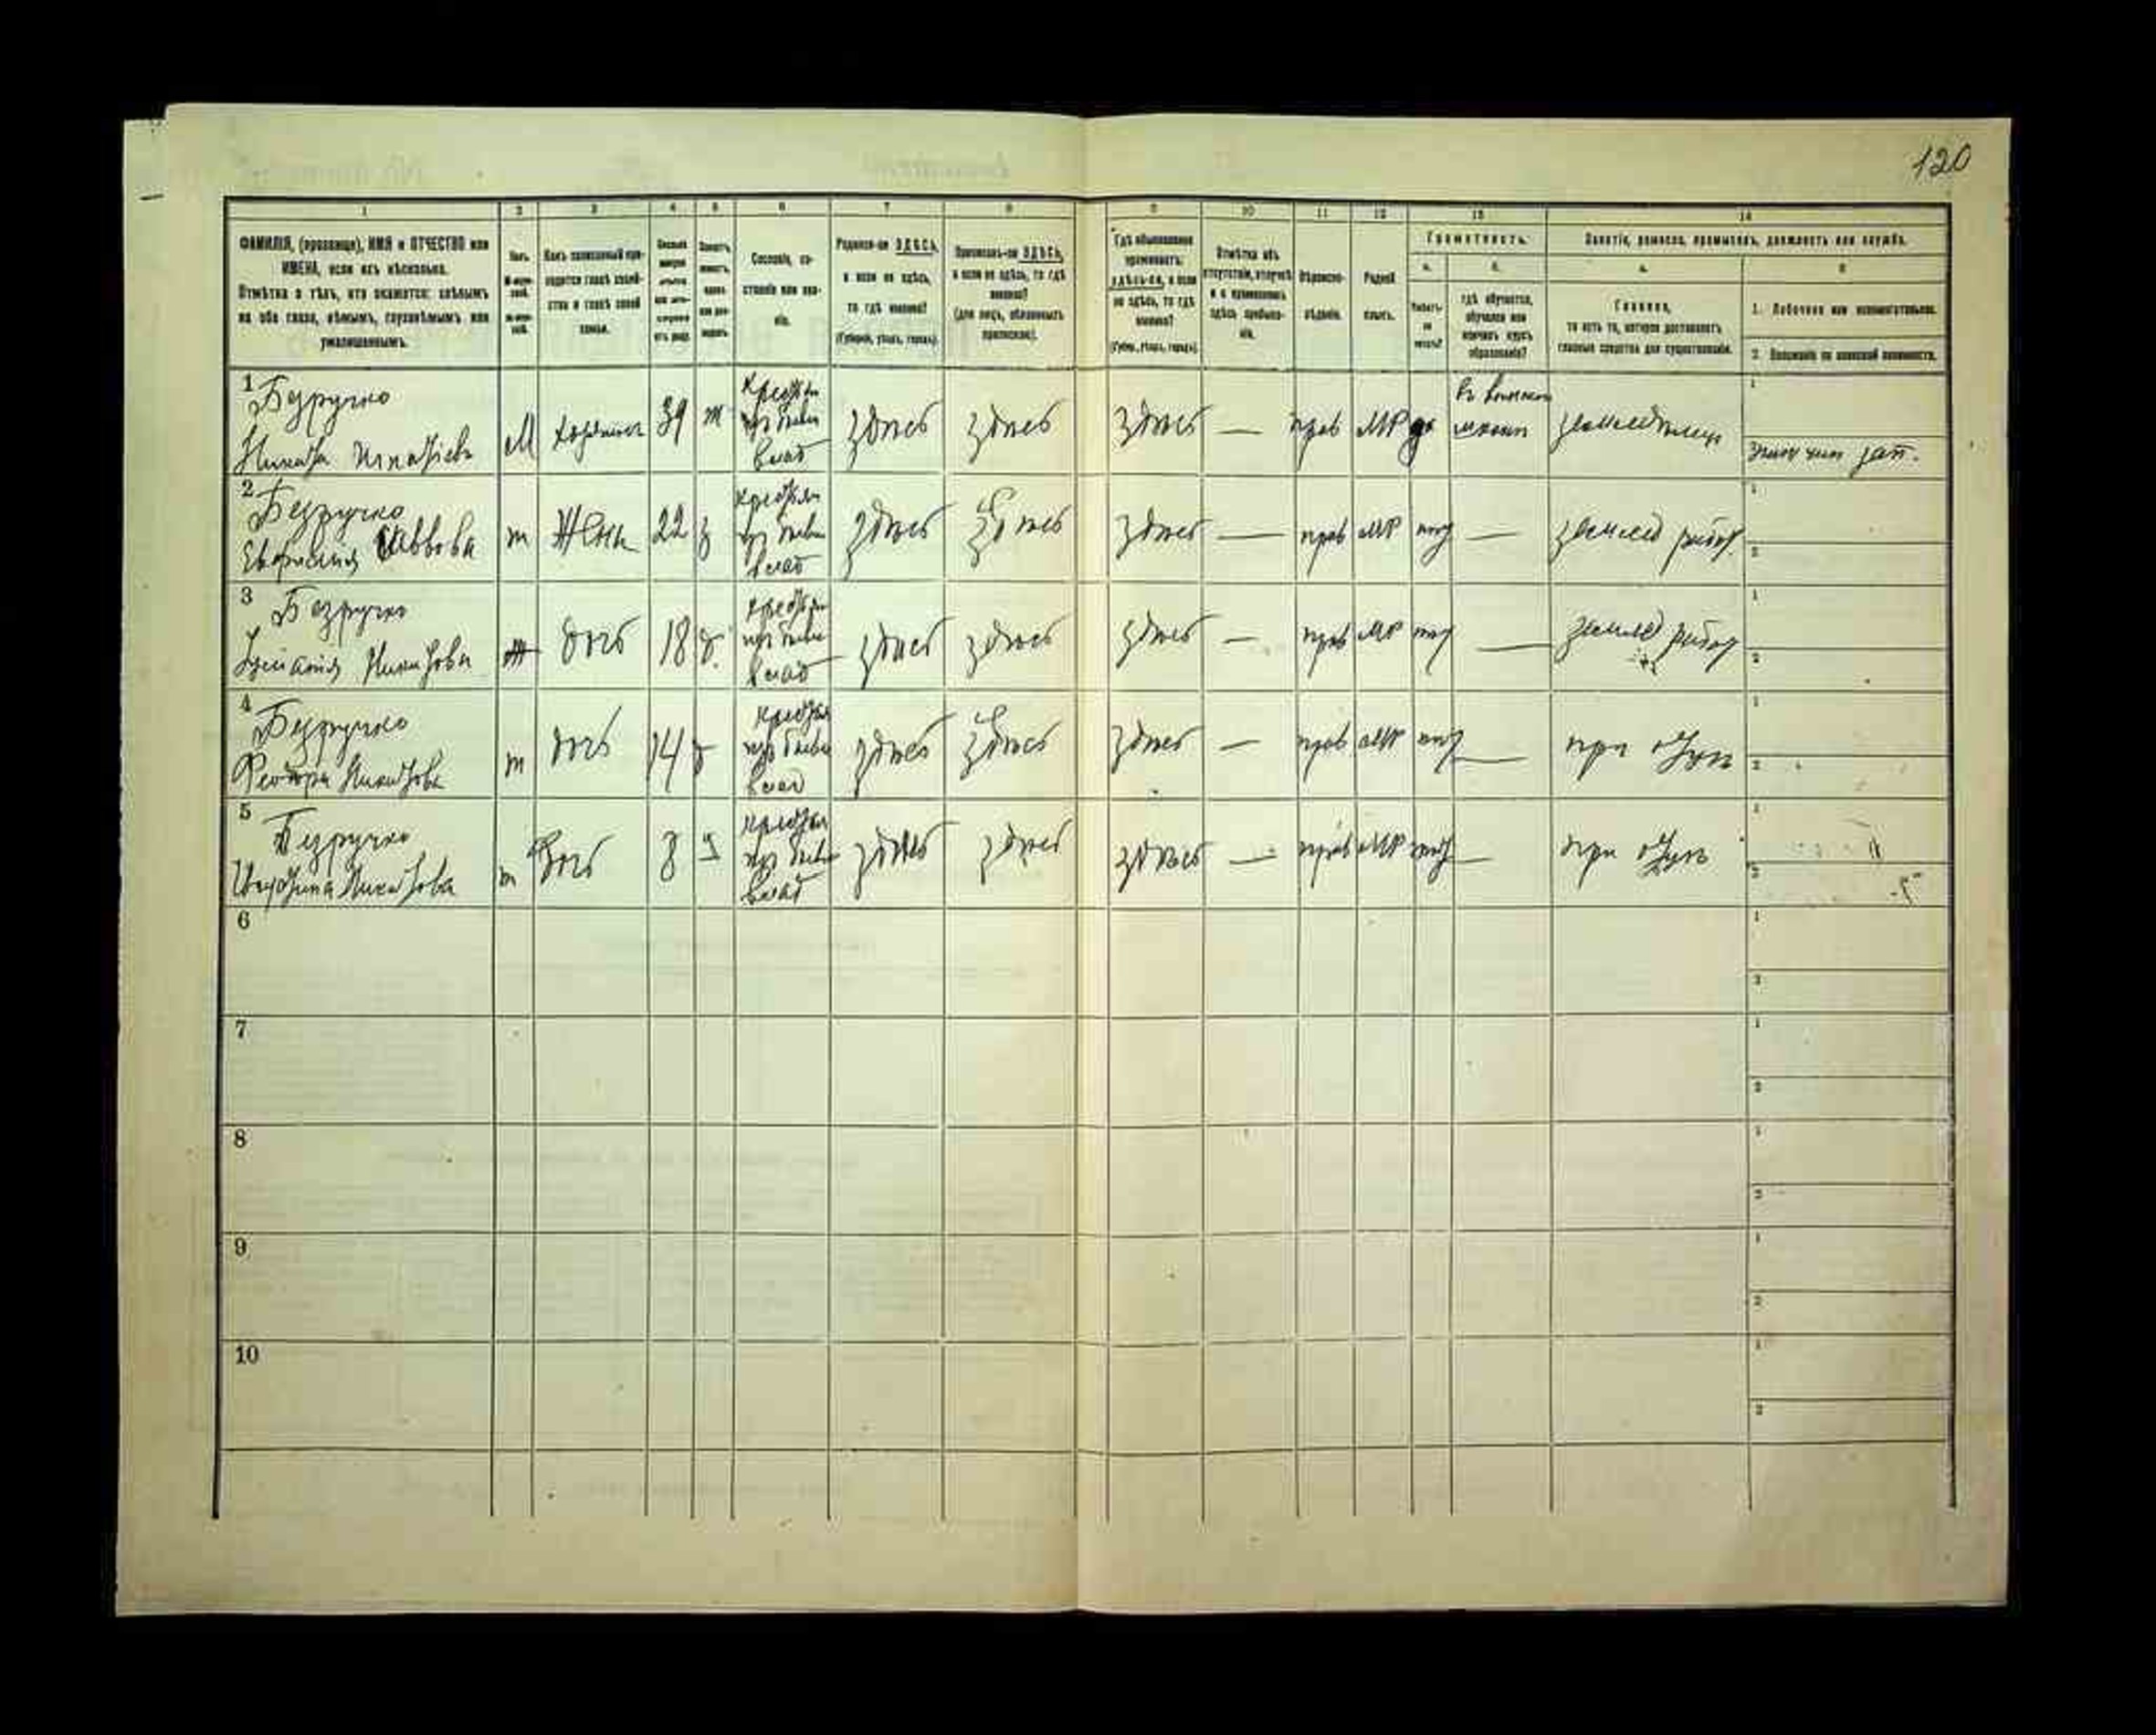 120
1 2 3 4 5 6 7 8 9 10 11 12 13 14
ФАМИЛІЯ, (прозвище), ИМЯ и ОТЧЕСТВО или
ИМЕНА, если ихъ нѣсколько.
Отмѣтка о тѣхъ, кто окажется: слѣпымъ
на оба глаза, нѣмымъ, глухонѣмымъ или
умалишеннымъ.
Полъ.
Какъ записанный при-
ходится главѣ хозяй-
ства и главѣ своей
семьи.
Сословіе, со-
стояніе или зва-
ніе.
Родился-ли ЗДѢСЬ,
а если не здѣсь,
то гдѣ именно?
(Губернія, уѣздъ, городъ).
Приписанъ-ли ЗДѢСЬ,
а если не здѣсь, то гдѣ
именно?
(для лицъ, обязанныхъ
припискою).
Гдѣ обыкновенно
проживаетъ:
здѣсь-ли, а если
не здѣсь, то гдѣ
именно?
(Губер., уѣздъ, городъ).
Отмѣтка объ
отсутствіи, отлучкѣ
и о временномъ
здѣсь пребыва-
ніи.
Вѣроиспо-
вѣданіе.
Родной
языкъ.
Грамотность.
а. б.
Умѣетъ-
ли
читать?
гдѣ обучается,
обучался или
кончилъ курсъ
образованія?
Занятіе, ремесло, промыселъ, должность или служба.
а. б
Главное,
то есть то, которое доставляетъ
главныя средства для существованія.
1. Побочное или вспомогательное.
2. Положеніе по воинской повинности.
1 Безручко
Никита Игнатіевъ
М хозяинъ 39 ж
крестьян
изъ бывш
влад
здѣсь здѣсь здѣсь — прав МР да
въ воинской
школѣ
земледѣлецъ
1
зап.
2 Безручко
Евфросинія Саввова
ж Жена 22 з
крестьян
изъ бывш
влад
здѣсь здѣсь здѣсь — прав МР нѣт — землед работ.
1
2
3 Безручко
Никитова
ж дочь 18 д
крестьян
изъ бывш
влад
здѣсь здѣсь здѣсь — прав МР нѣт — землед работ
1
2
4 Безручко
Феодора Никитова
ж дочь 14 д
крестьян
изъ бывш
влад
здѣсь здѣсь здѣсь — прав МР нѣт — при отцѣ
1
2
5 Безручко
Никитова
ж дочь 8 д
крестьян
изъ бывш
влад
здѣсь здѣсь здѣсь — прав МР нѣт — при отцѣ
1
2
6
1
2
7
1
2
8
1
2
9
1
2
10
1
2